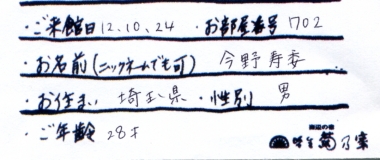 ・ご来館日 12.10.24 ・お部屋番号 702
・お名前(ニックネームでも可) 今野寿委
・お住まい 埼玉県 ・性別 男
・ご年齢 28才